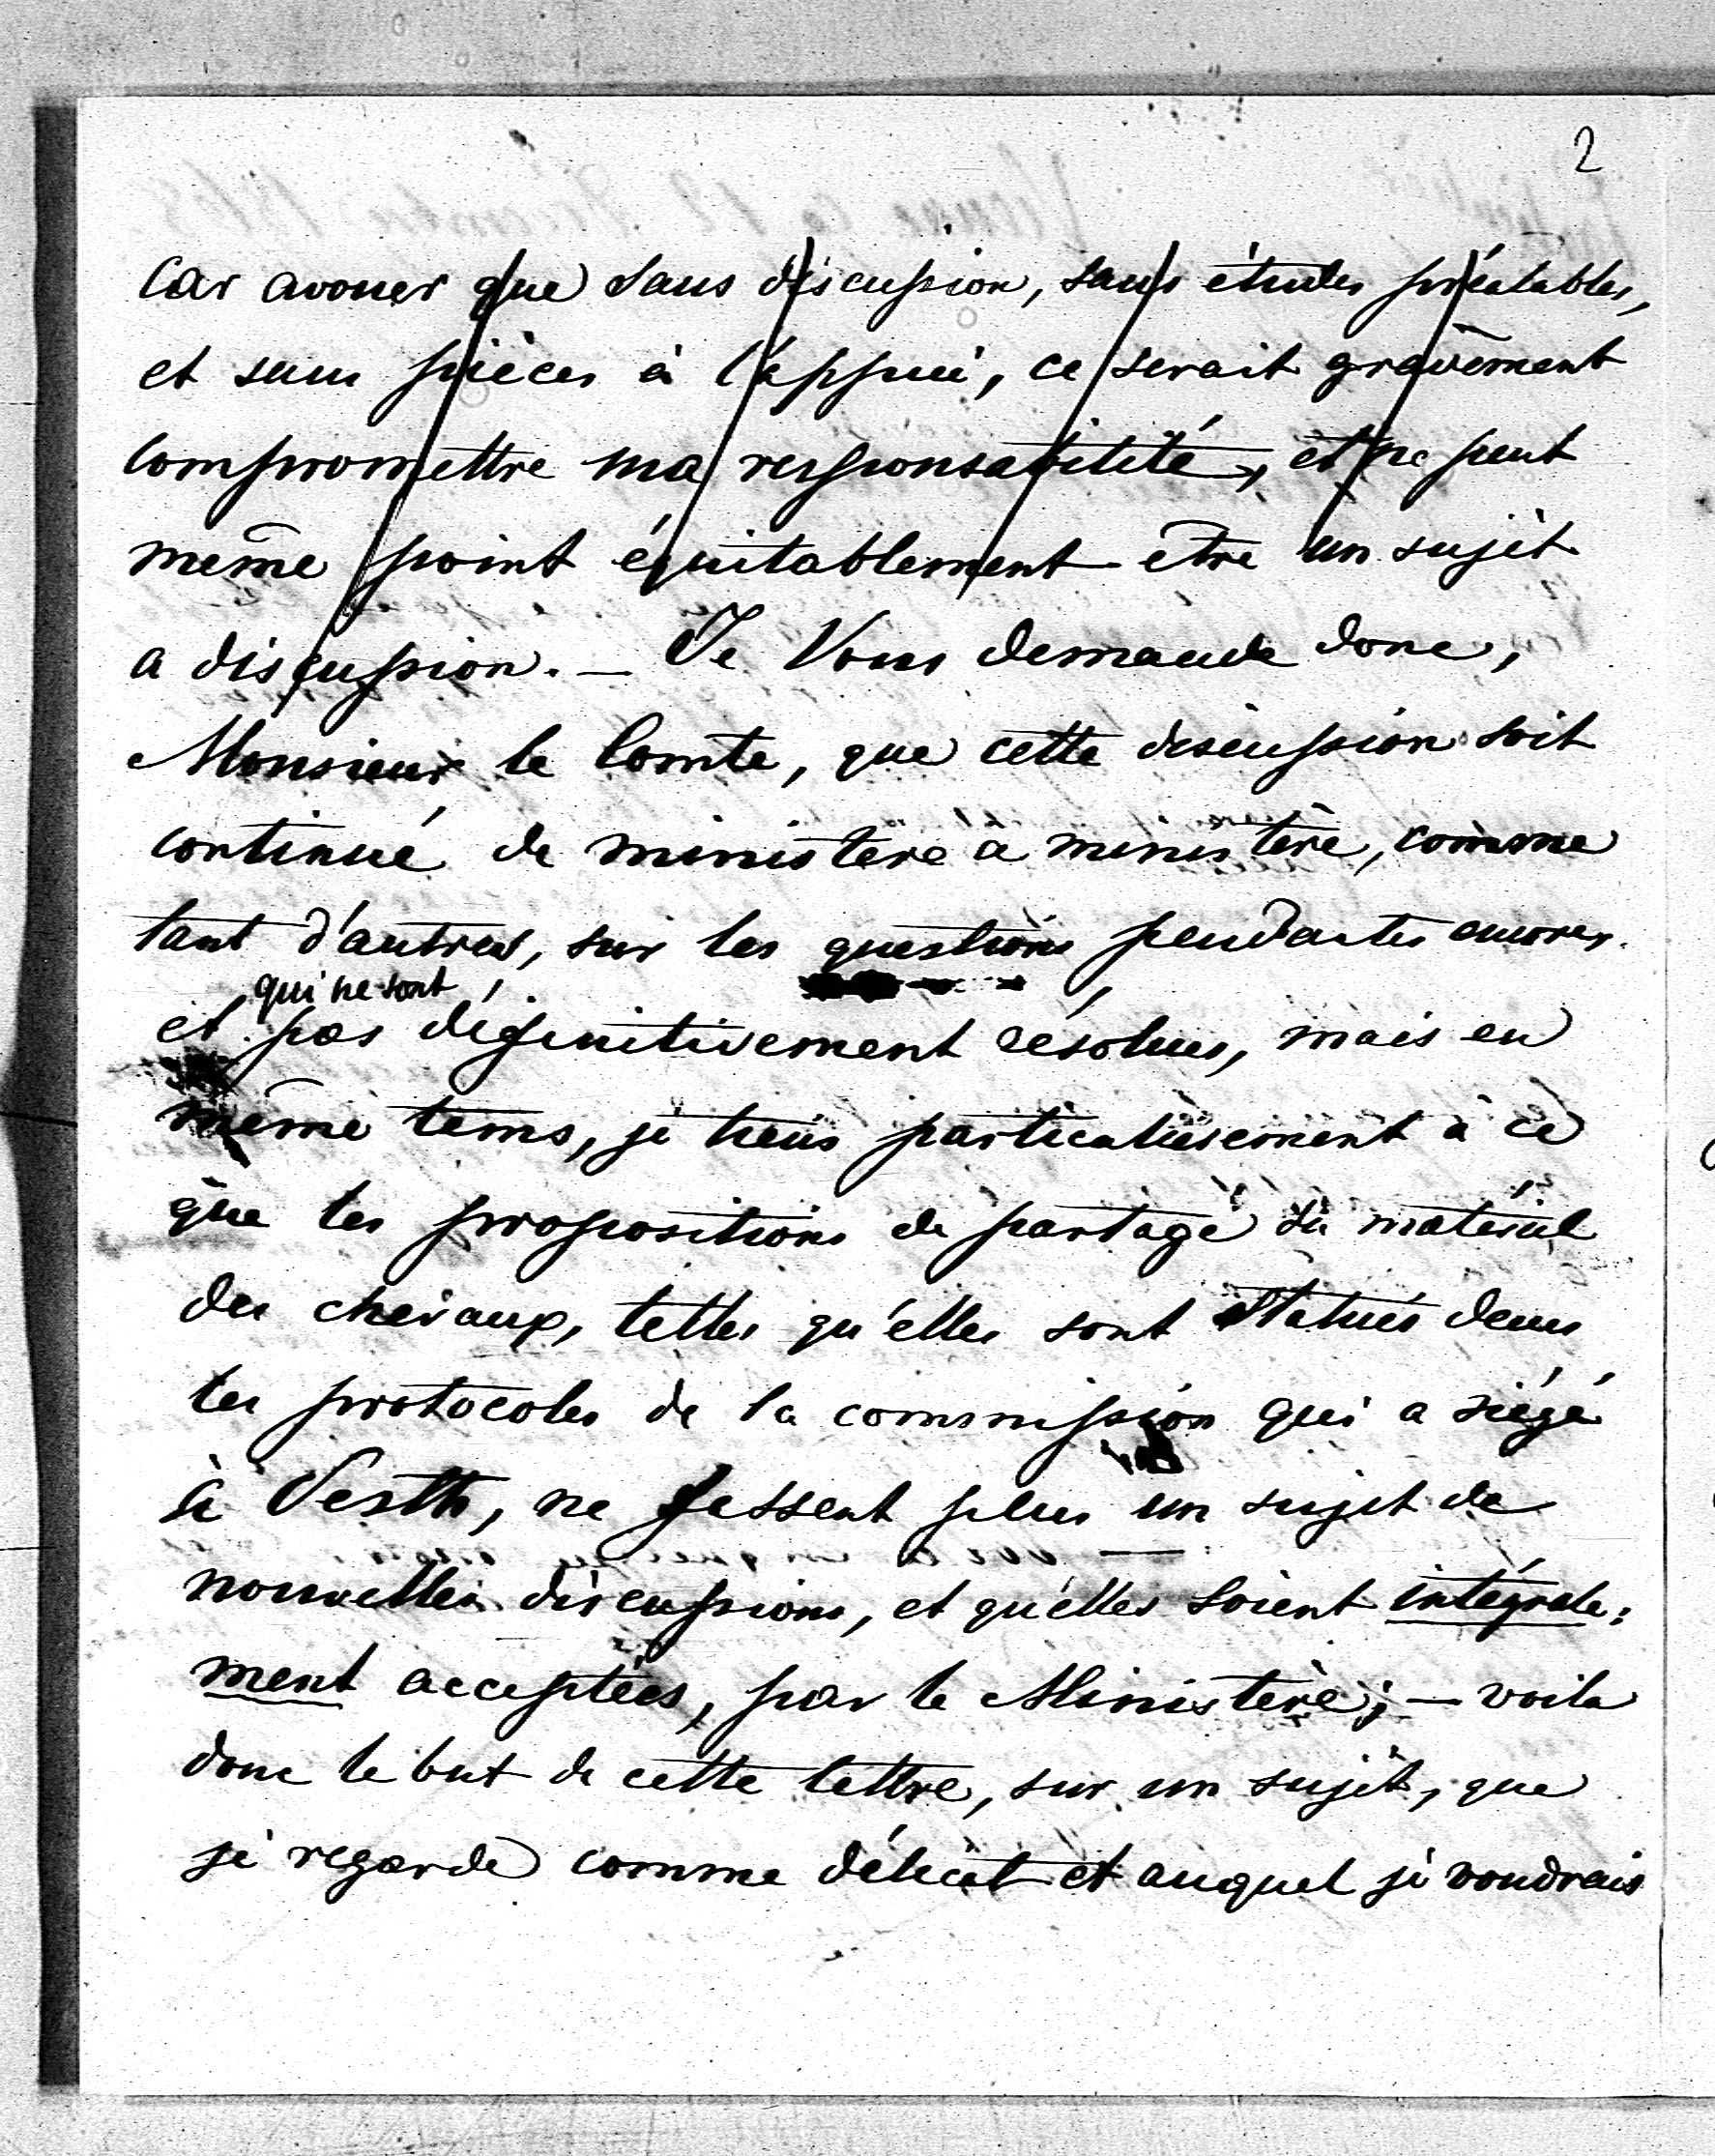 2
car avouer que sans discussion, sans études préalables,
et sans pièces à l'appui, ce serait gravement
compromettre ma responsabilité, et ne peut
même point équitablement être un sujèt
a discussion. — Je Vous demande donc,
Monsieur le Comte, que cette discussion soit
continué de ministère a ministère, comme
tant d'autres, sur les questions pendantes encores
qui ne sont
et pas définitivement résolues, mais en
même tems, je tiens particulièrement à ce
que les propositions de partage du matériel
des chevaux, telles qu'elles sont statués dans
les protocoles de la commission qui a siégé
à Pesth, ne fessent plus un sujet de
nouvelles discussions, et qu'elles soient intégrale:
ment acceptées, par le Ministère; — voila
donc le but de cette lettre, sur un sujèt, que
je regarde comme délicat et auquel je voudrais